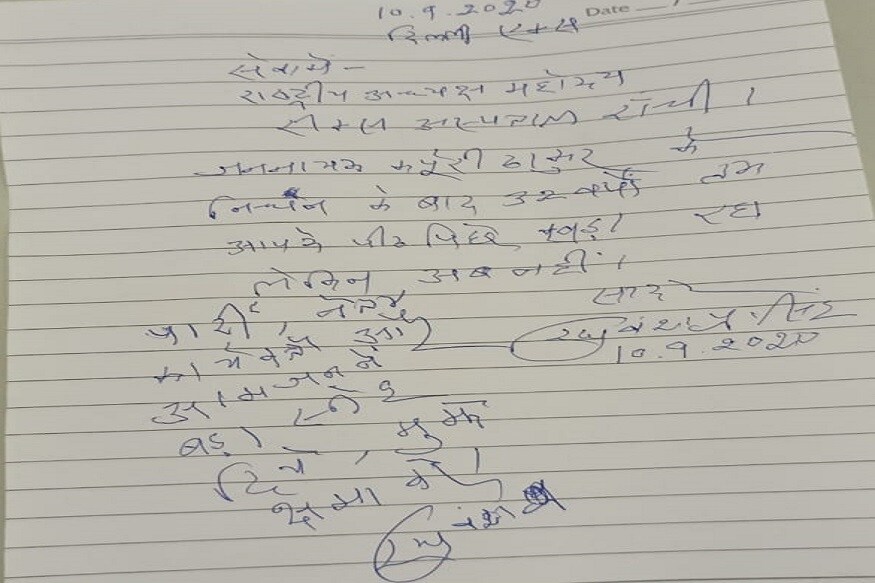 10.9.2020 Date
दिल्ली एम्स
सेवामें -
राष्ट्रीय अध्यक्ष महोदय
रीम्स अस्पताल राँची।
जननायक कर्पूरी ठाकुर के
निधन के बाद 32 वर्षों तक
आपके पीठ पीछे खड़ा रहा
लेकिन अब नहीं।
पार्टी, नेता,
कार्यकर्ता और
आमजन ने
बड़ा स्नेह
दिया, मुझे
क्षमा करें।
सादर
रघुवंश प्रसाद सिंह
10.9.2020